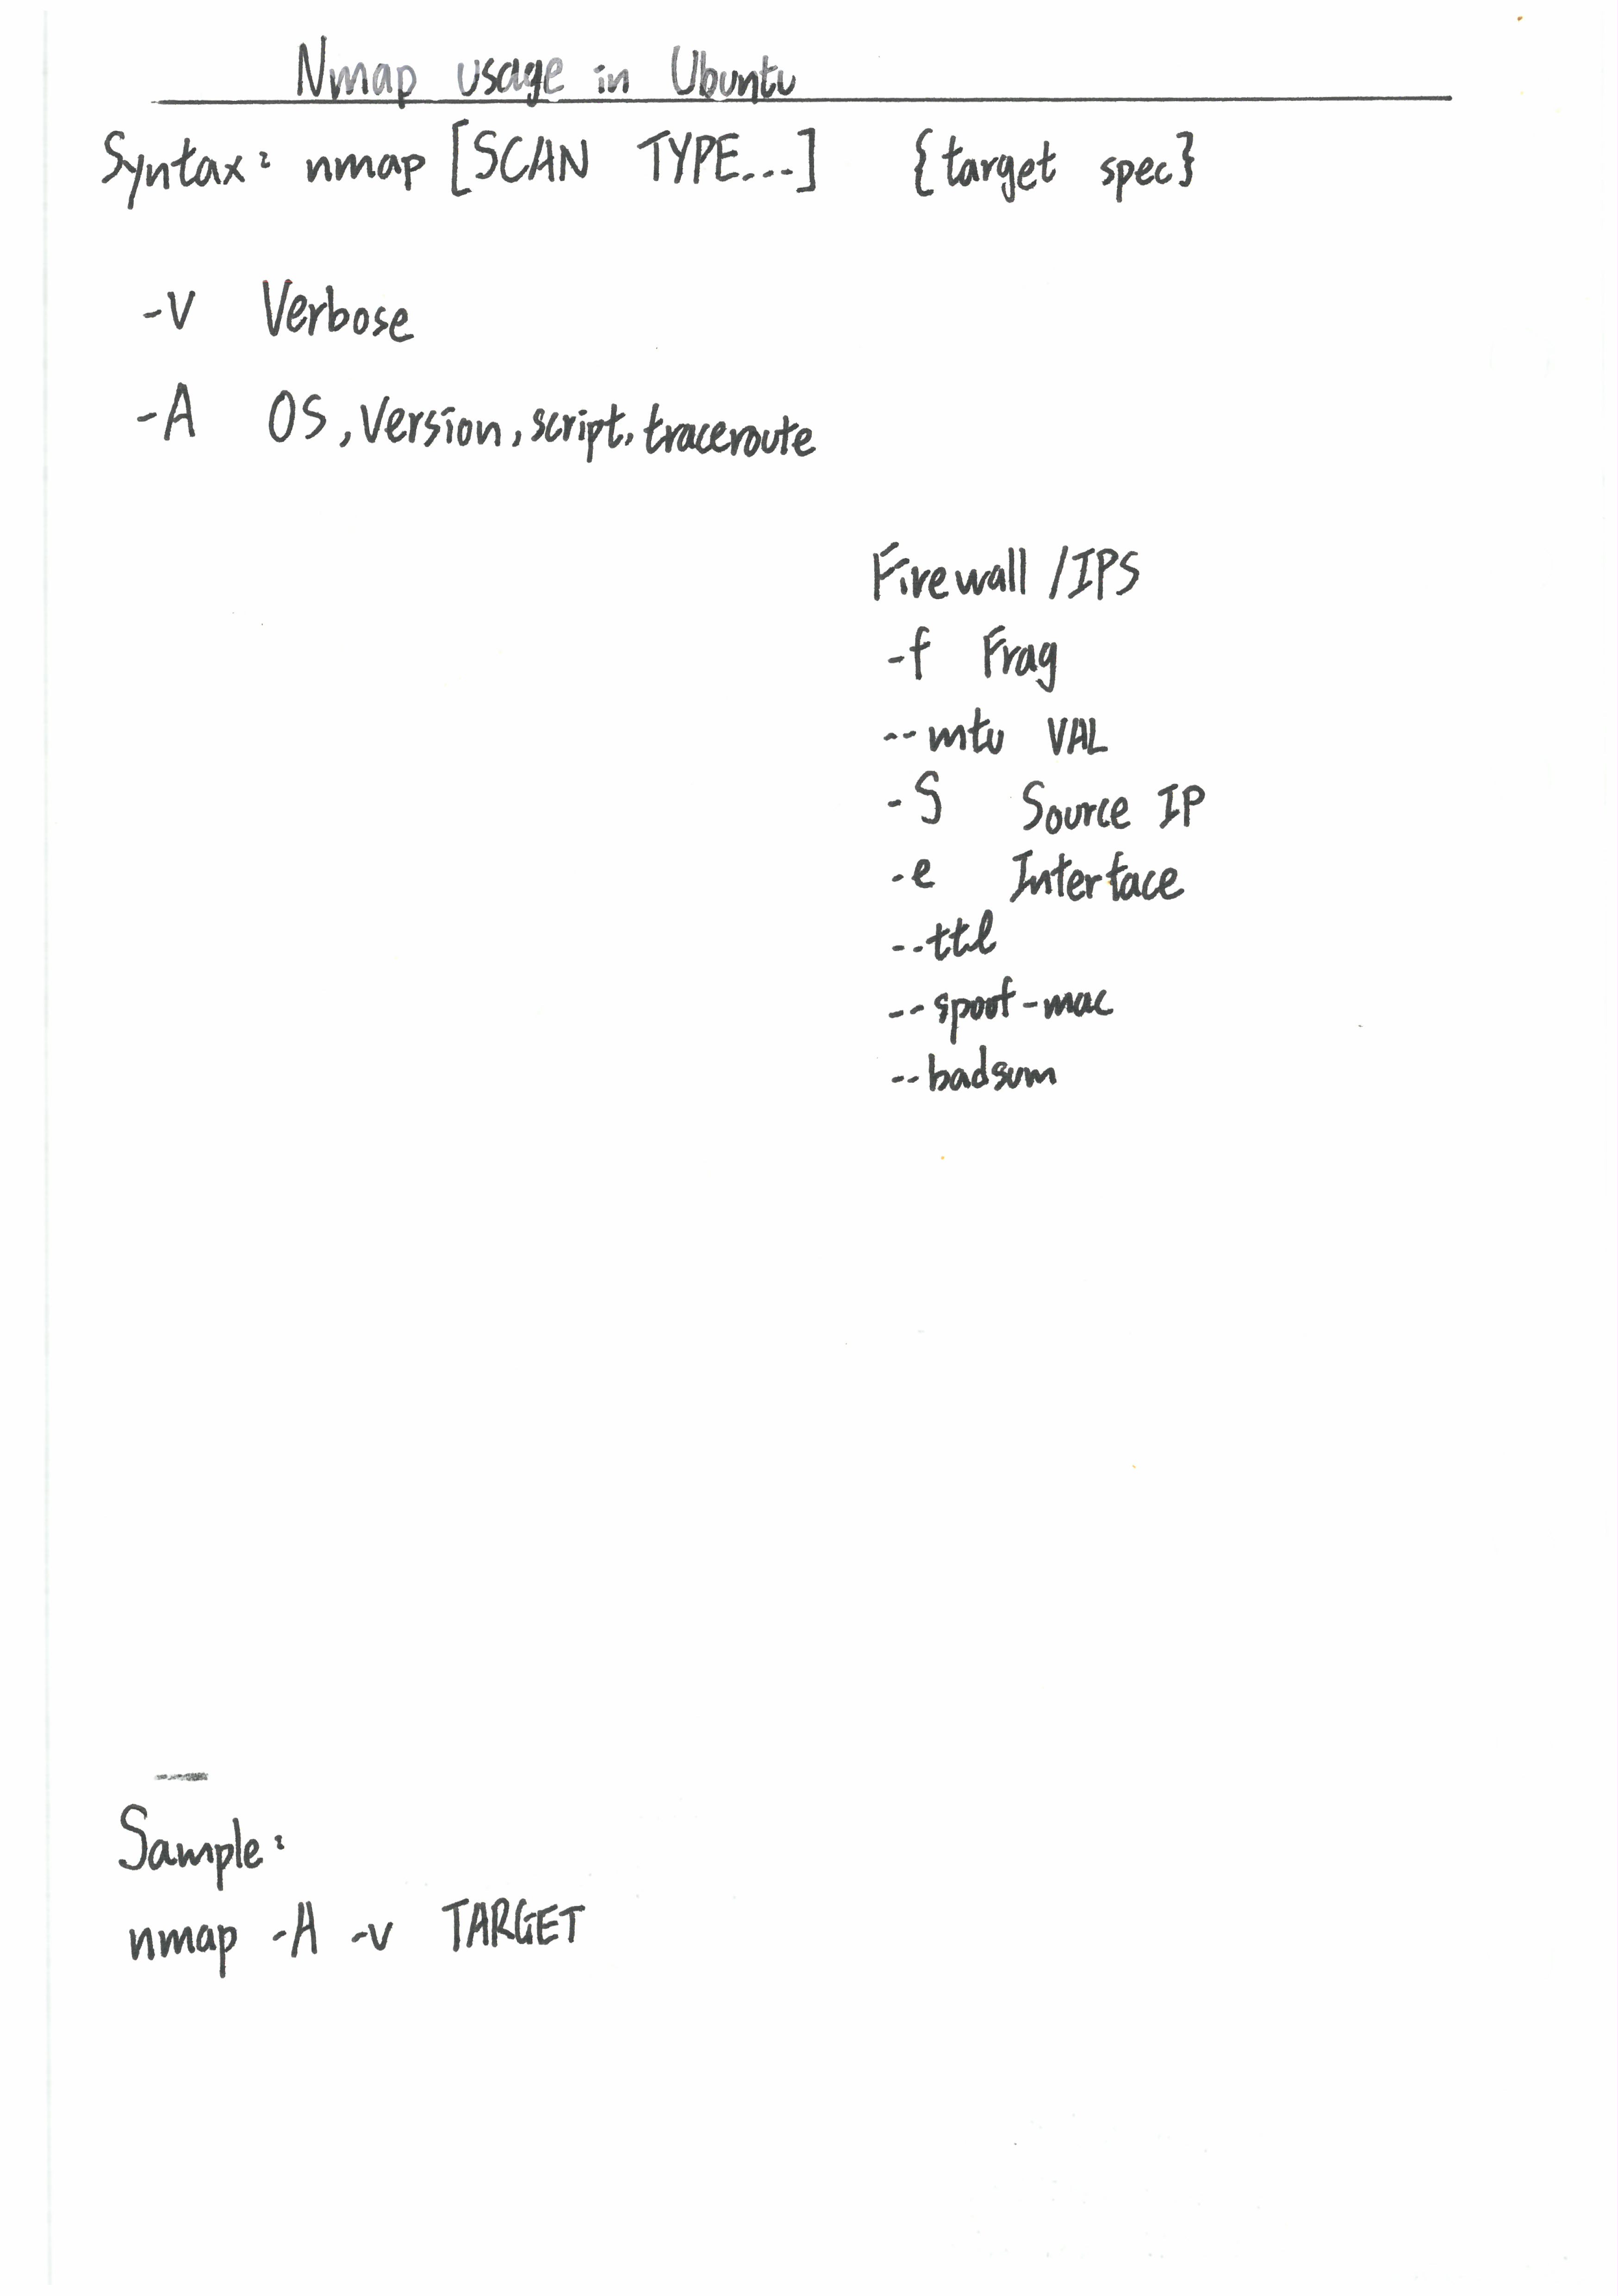 Nmap usage in Ubuntu
Syntax: nmap [SCAN TYPE...] {target spec}
-v Verbose
-A OS, Version, script, traceroute
Firewall /IPS
-f Frag
--mtu VAL
-S Source IP
-e Interface
--ttl
--spoof-mac
--badsum
Sample:
nmap -A -v TARGET